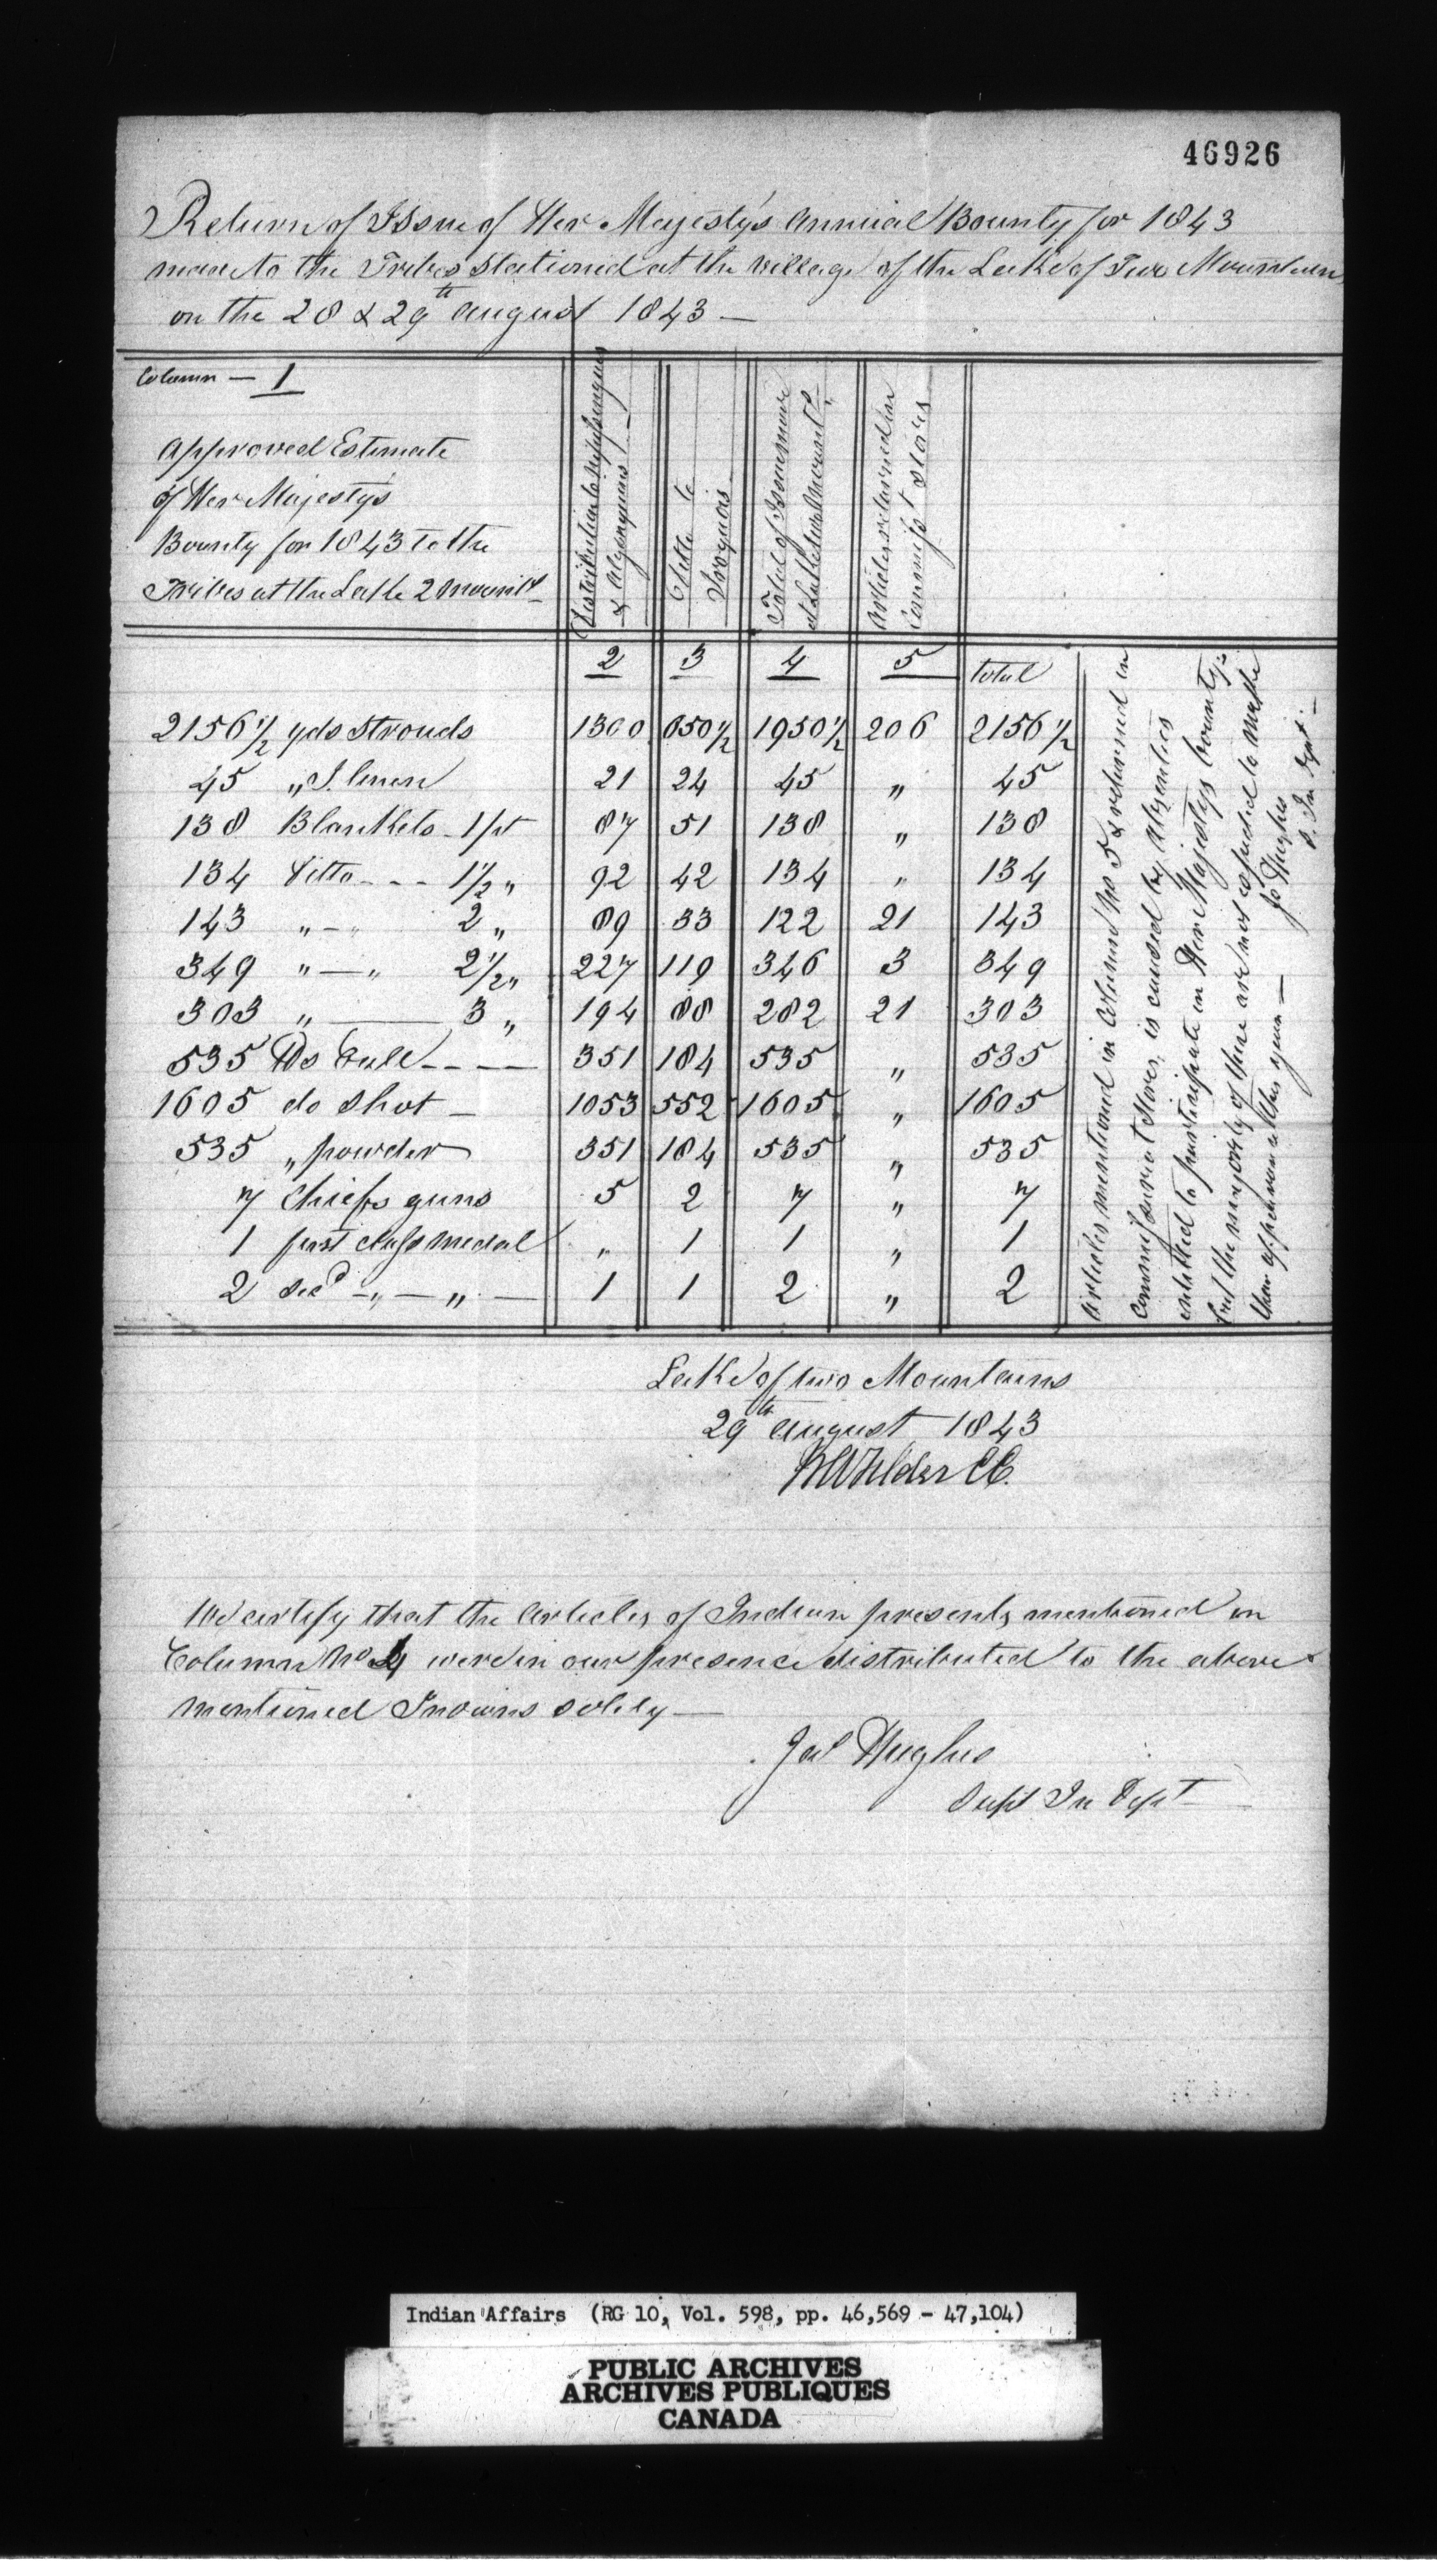 46926
Return of Issue of Her Majesty's Annual Bounty for 1843
made to the Tribes Stationed at the Village of the Lake of Two Mountains
on the 28 & 29th August 1843 —
Column — 1
Approved Estimate
of Her Majestys
Bounty for 1843 to the
Tribes at the Lake 2 Mount
Distribution to Nipissingues
& Algonquins
Ditto to
Iroquois
Total of Issue made
at Lake two Mount
Articles returned in
Commisst Stores
2 3 4 5 total
2156 1/2 yds Strouds 1300 650 1/2 1950 1/2 206 2156 1/2
45 " I. linen 21 24 45 " 45
138 Blankets 1/pt 87 51 138 " 138
134 Ditto - - - 1 1/2 " 92 42 134 " 134
143 " - " 2 " 89 33 122 21 143
349 " — " 2 1/2 " 227 119 346 3 349
303 " — 3 " 194 88 282 21 303
535 lbs Ball - - — 351 184 535 " 535
1605 do Shot — 1053 552 1605 " 1605
535 " powder 351 184 535 " 535
7 Chiefs guns 5 2 7 " 7
1 first class medal " 1 1 " 1
2 secd - " — " — 1 1 2 " 2
Articles mentioned in Column No 5 & returned in
Commissariat Stores, is caused by absentees
entitled to participate in Her Majestys bounty;
but the majority of these are not expected to make
their appearance this year —
Js Hughes
S. In Dept —
Lake of two Mountains
29th August 1843
CC.
We certify that the Articles of Indian presents mentioned in
Column No 4 were in our presence distributed to the above
mentioned Indians solely —
Jas Hughes
Supt In Dept
Indian Affairs (RG 10, Vol. 598, pp. 46,569 - 47,104)
PUBLIC ARCHIVES
ARCHIVES PUBLIQUES
CANADA